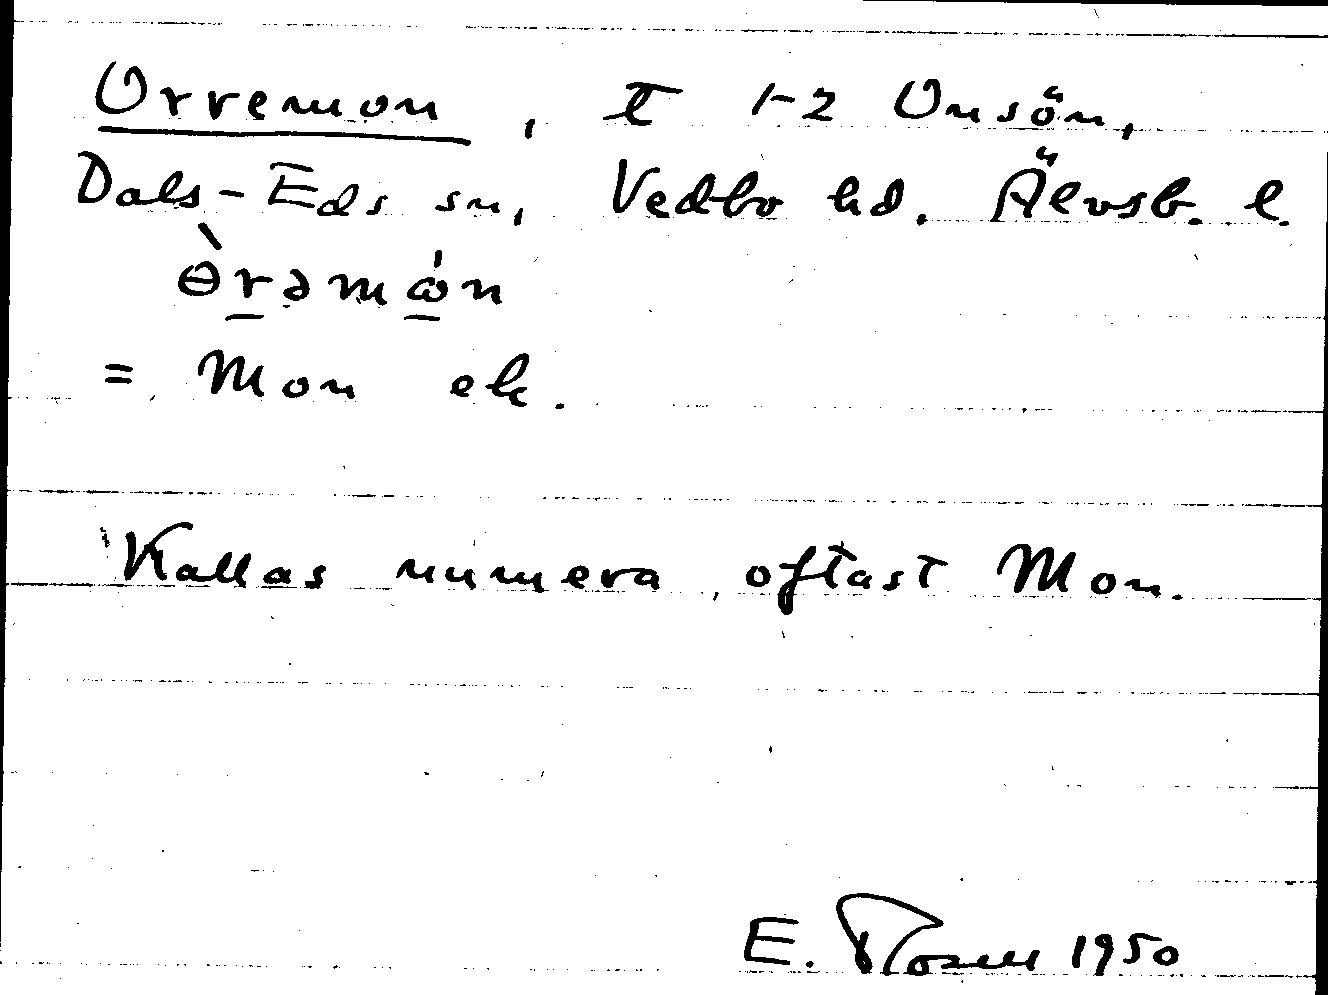 Orremon, t 1-2 Onsön,
Dals-Eds sn, Vedbo hd. Älvsb. l.
ɵ̀rəmɷ́n
= Mon ek.
Kallas numera oftast Mon.
E. Rosell 1950